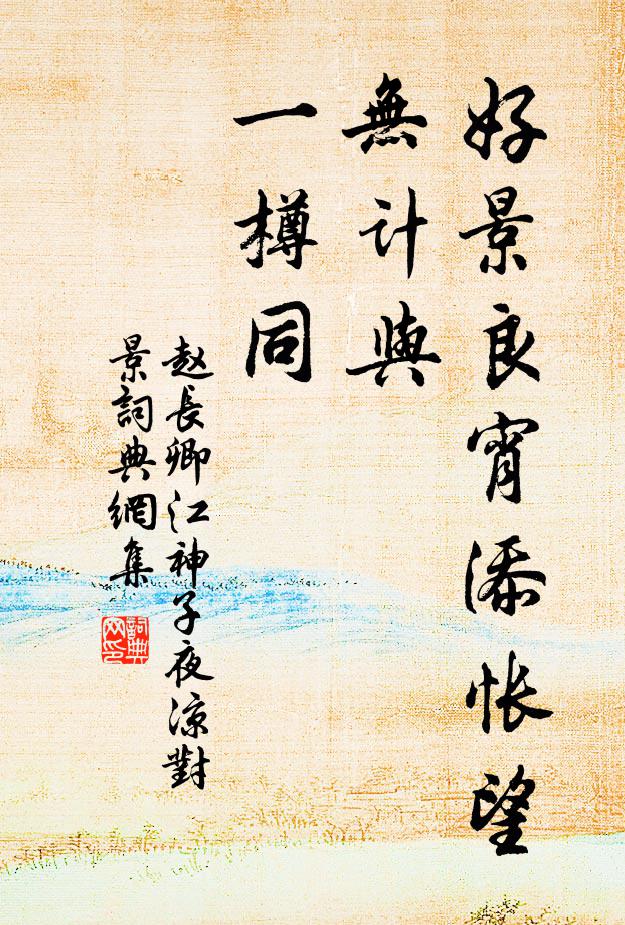 好景良宵添怅望
無計與
一樽同
赵長卿江神子夜凉對
景詞典網集
詞典网印